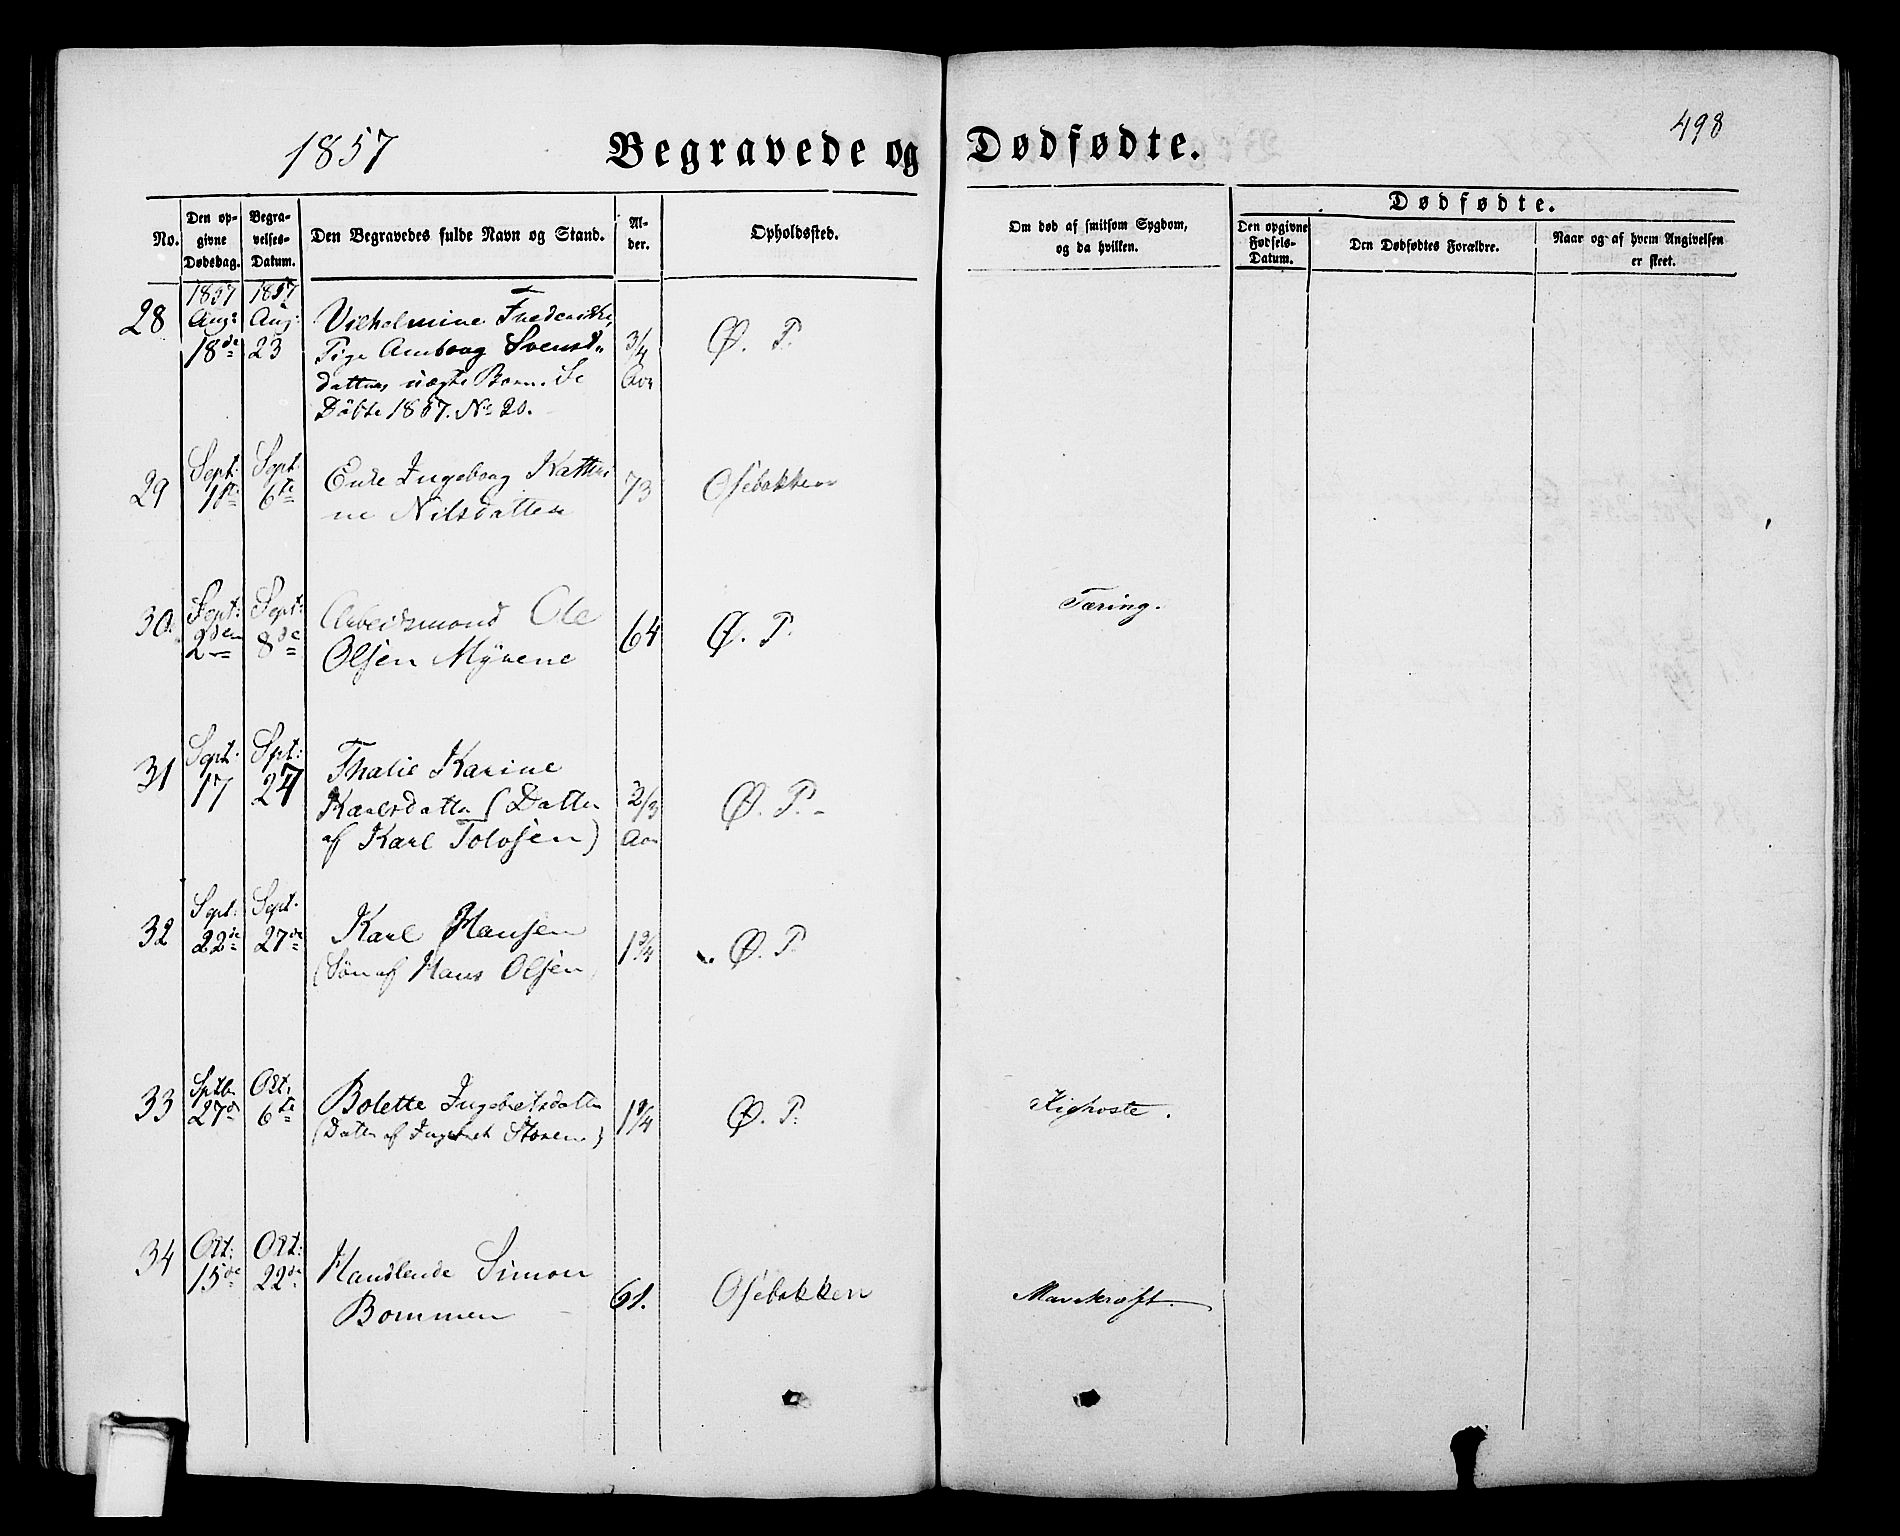 1857
Begravede og Dødfødte.
498
No.
Den opgivne Dødsdag.
Begravelses-Datum.
Den Begravedes fulde Navn og Stand.
Alder.
Opholdssted.
Om død af smitsom Sygdom, og da hvilken.
Dødfødte.
Den opgivne Fødsels-Datum.
Den Dødfødtes Forældre.
Naar og af hvem Angivelsen er skeet.
28
1857 1857
Aug: Aug:
18de 23
Vilhelmine Frederikke,
Pige Amborg Svends-
datters uægte Barn. Se
Døbte 1857. No 20.
3/4
Aar
Ø. P.
29
Sept: Sept:
1ste 6te
Enke Ingeborg Kathri
ne Nilsdatter
73
Osebakken
30.
Sept: Sept:
2den 8de
Arbeidsmand Ole
Olsen Myrene
64
Ø. P.
Tæring.
31
Sept: Spt:
17 27
Thalie Karine
Karlsdatter (Datter
af Karl Tolvsen)
2/3
Aar
Ø. P.
32
Sept: Sept.
22de 27de
Karl Hansen
(Søn af Hans Olsen
1 3/4
Ø. P.
33
Sptbr Oct.
27de 6te
Bolette Ingebretsdatter
(Datter af Ingebret)
1 1/4
Ø. P.
Kighoste.
34
Oct: Oct:
15de 22de
Handlende Simon
Bommen
61.
Osebakken
Mavekræft.